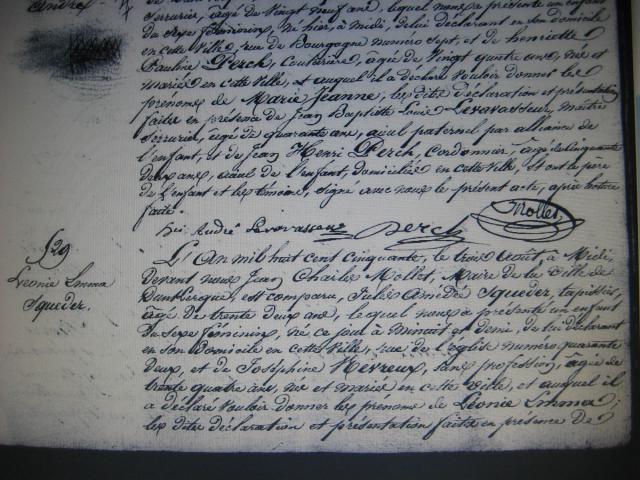 André
Serrurier, âgé de vingt neuf ans, lequel nous a présenté un enfant
du sexe féminin, né hier, à midi, de lui déclarant en son domicile
en cette ville, rue de Bourgogne numéro sept, et de henriette
Pauline Perch, Couturière, âgée de vingt quatre ans, née et
mariée en cette ville, et auquel il a déclaré vouloir donner les
prénoms de Marie Jeanne; les dite déclaration et présentation
faites en présence de Jean Baptiste Louis Levavasseur, maître
Serrurier, âgé de quarante ans, aïeul paternel par alliance de
l'enfant, et de Jean Henri Perch, Cordonnier, âgé de cinquante
deux ans, aïeul de l'enfant, domiciliés en cette ville, Et ont le père
de l'enfant et les témoins, signé avec nous le présent acte, après lecture
faite.
André Levavasseur Perch Mollet
529
Léonie Emma
Squeder.
L'An mil huit cent cinquante, le trois Août, à Midi,
devant nous Jean Charles Mollet, Maire de la ville de
Dunkerque, est comparu, Jules Amédé Squeder, tapissier,
âgé de trente deux ans, lequel nous a présenté un enfant
du sexe féminin, né ce jour à minuit et demie, de lui déclarant
en son domicile en cette ville, rue de l'église numéro quarante
deux, et de Joséphine Nevreux, sans profession, âgée de
trente quatre ans, née et mariée en cette ville, et auquel il
a déclaré vouloir donner les prénoms de Léonie Emma;
les dite déclaration et présentation faites en présence de